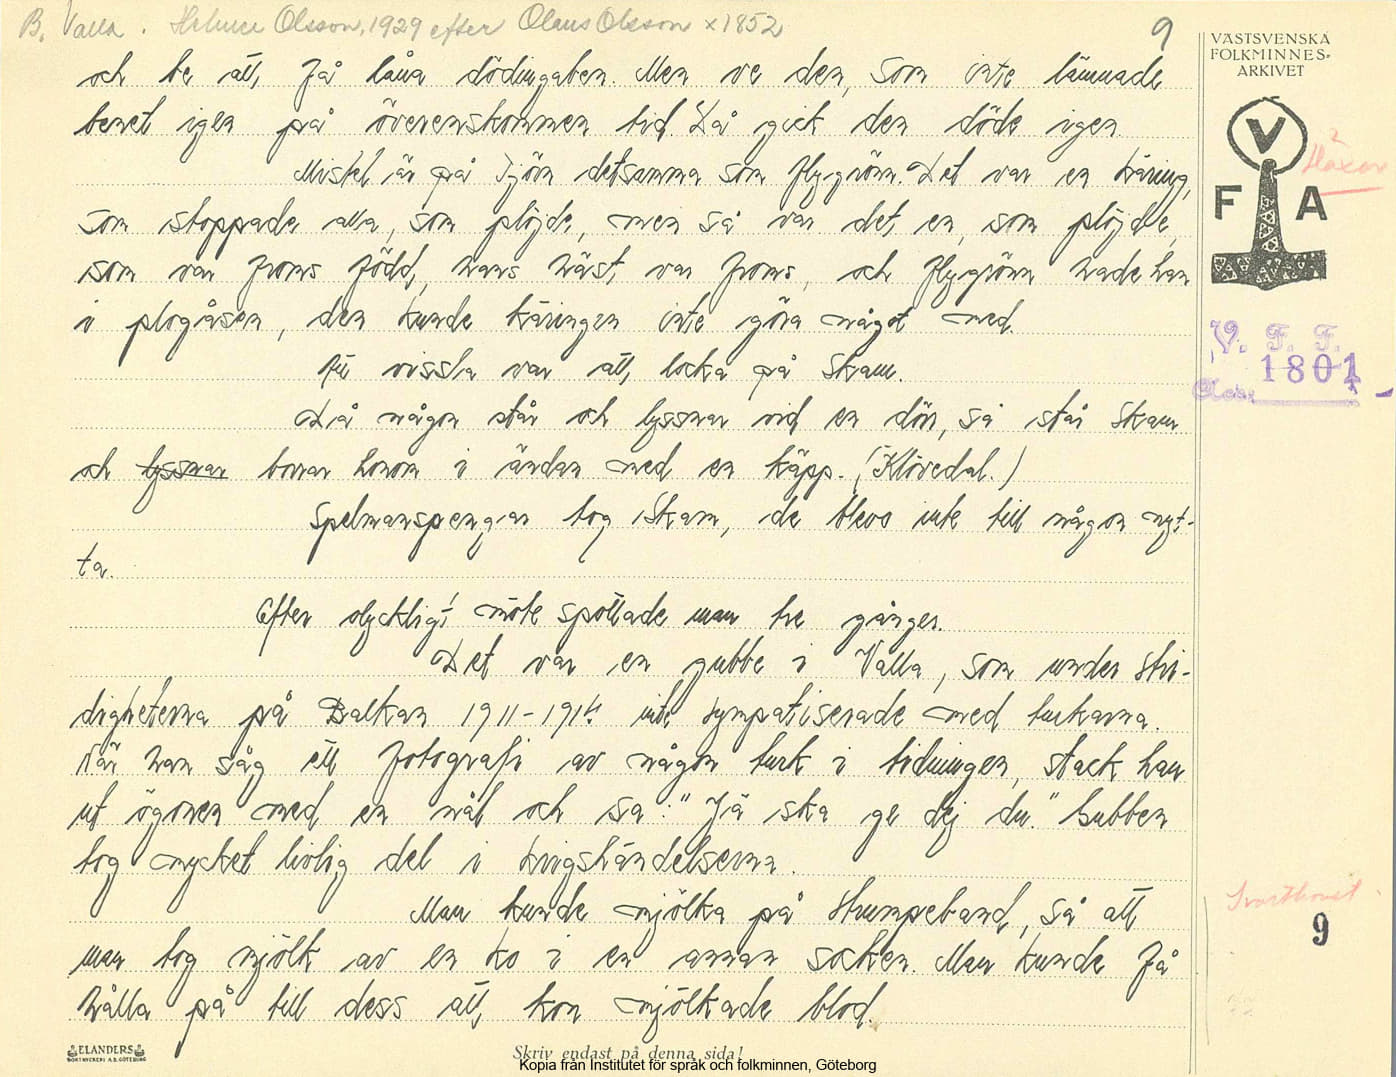 B. Valla. Helmer Olsson, 1929 efter Olaus Olsson x 1852
9
VÄSTSVENSKA
FOLKMINNES-
ARKIVET
och be att få låna dödingaben. Men ve den, som inte lämnade
benet igen på överenskommen tid. Då gick den döde igen.
Mistel är på Tjörn detsamma som flygrönn. Det var en käring,
som stoppade alla, som plöjde, men så var det en, som plöjde,
som var froms född, hans häst var froms, och flygrönn hade han
i plogåsen, den kunde käringen inte göra något med.
Att vissla var att locka på Skam.
Då någon står och lyssnar vid en dörr, så står Skam
och lyssnar borrar honom i ändan med en käpp. (Klövedal.)
Spelmanspengar tog Skam, de blevo inte till någon nyt-
ta.
Efter olyckligt möte spottade man tre gånger.
Det var en gubbe i Valla, som under stri-
digheterna på Balkan 1911-1914 inte sympatiserade med turkarna.
När han såg ett fotografi av någon turk i tidningen, stack han
ut ögonen med en nål och sa: "Jä ska ge dej du." Gubben
tog mycket livlig del i krigshändelserna.
Man kunde mjölka på strumpeband, så att
man tog mjölk av en ko i en annan socken. Man kunde få
hålla på till dess att kon mjölkade blod.
V
F A
Häxor
V. F. F.
1801
Svartkonst
9
ELANDERS
BOKTRYCKERI A.B. GÖTEBORG
Skriv endast på denna sida!
Kopia från Institutet för språk och folkminnen, Göteborg